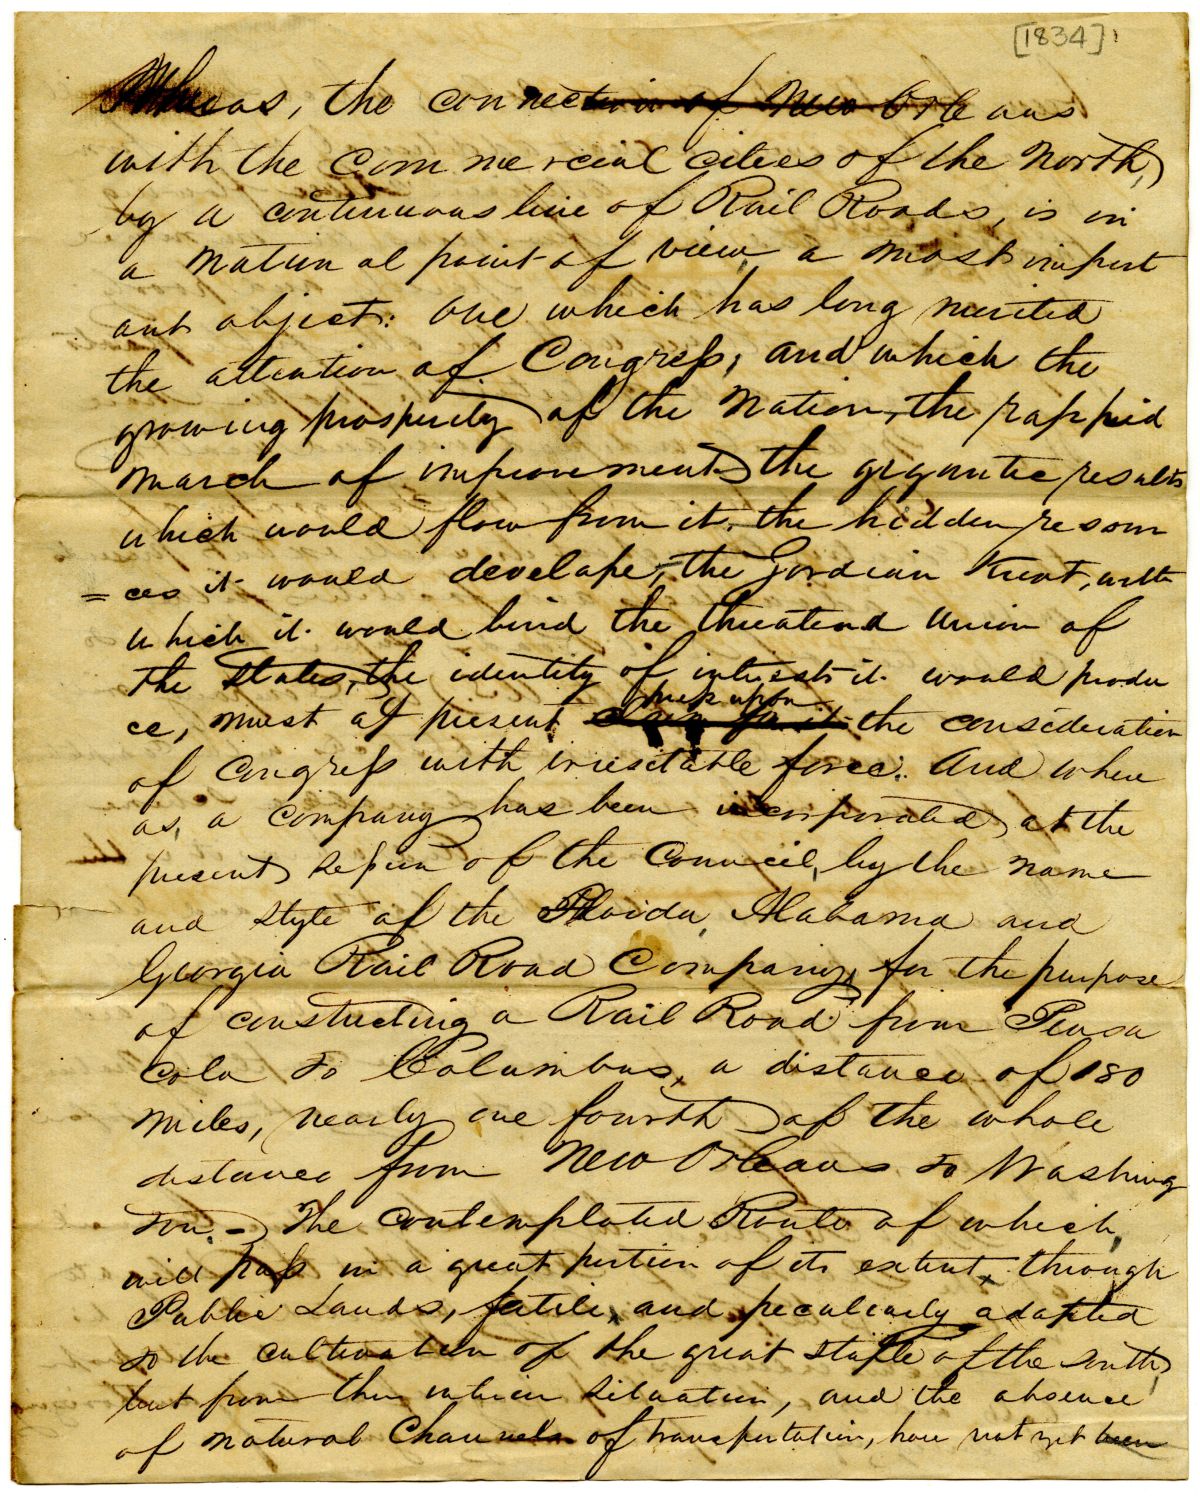 [1834]
Whereas, the connection of New Orleans
with the commercial cities of the North,
by a continuous line of Rail Roads, is in
a National point of view, a most import
ant object: one which has long merited
the attention of Congress, and which the
growing prosperity of the Nation, the rappid
march of improvement, the gigantic results
which would flow from it, the hidden resour
=ces it would develope, the Gordian Knot, with
which it would bind the threatend Union of
the States, the identity of interests it would produ
ce, must at present press upon the consideration
of Congress with irresistable force. And where
as, a company has been incorporated, at the
present Session of the Council, by the name
and style of the Florida, Alabama and
Georgia Rail Road Company, for the purpose
of constucting a Rail Road from Pensa
cola to Columbus, a distance of 180
miles, nearly one fourth of the whole
distance from New Orleans to Washing
ton. – The contemplated Route of which,
will pass in a great portion of its extent, through
Public Lands, fertile, and peculiarly adapted
to the cultivation of the great staple of the South,
but from their interior situation, and the absence
of natural Channels of transportation, have not yet been